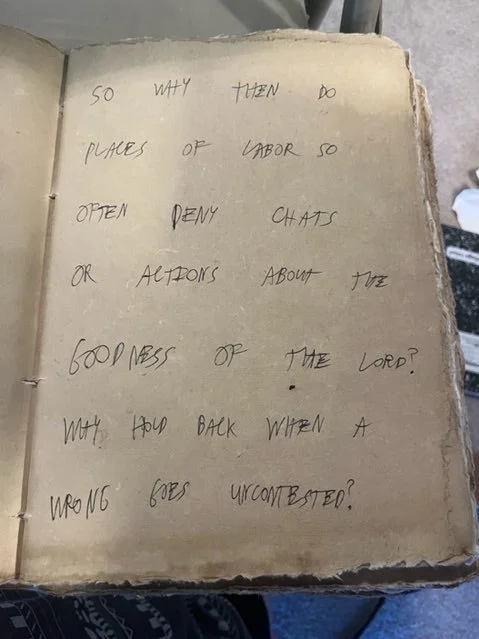 SO WHY THEN DO
PLACES OF LABOR SO
OFTEN DENY CHATS
OR ACTIONS ABOUT THE
GOODNESS OF THE LORD?
WHY HOLD BACK WHEN A
WRONG GOES UNCONTESTED?